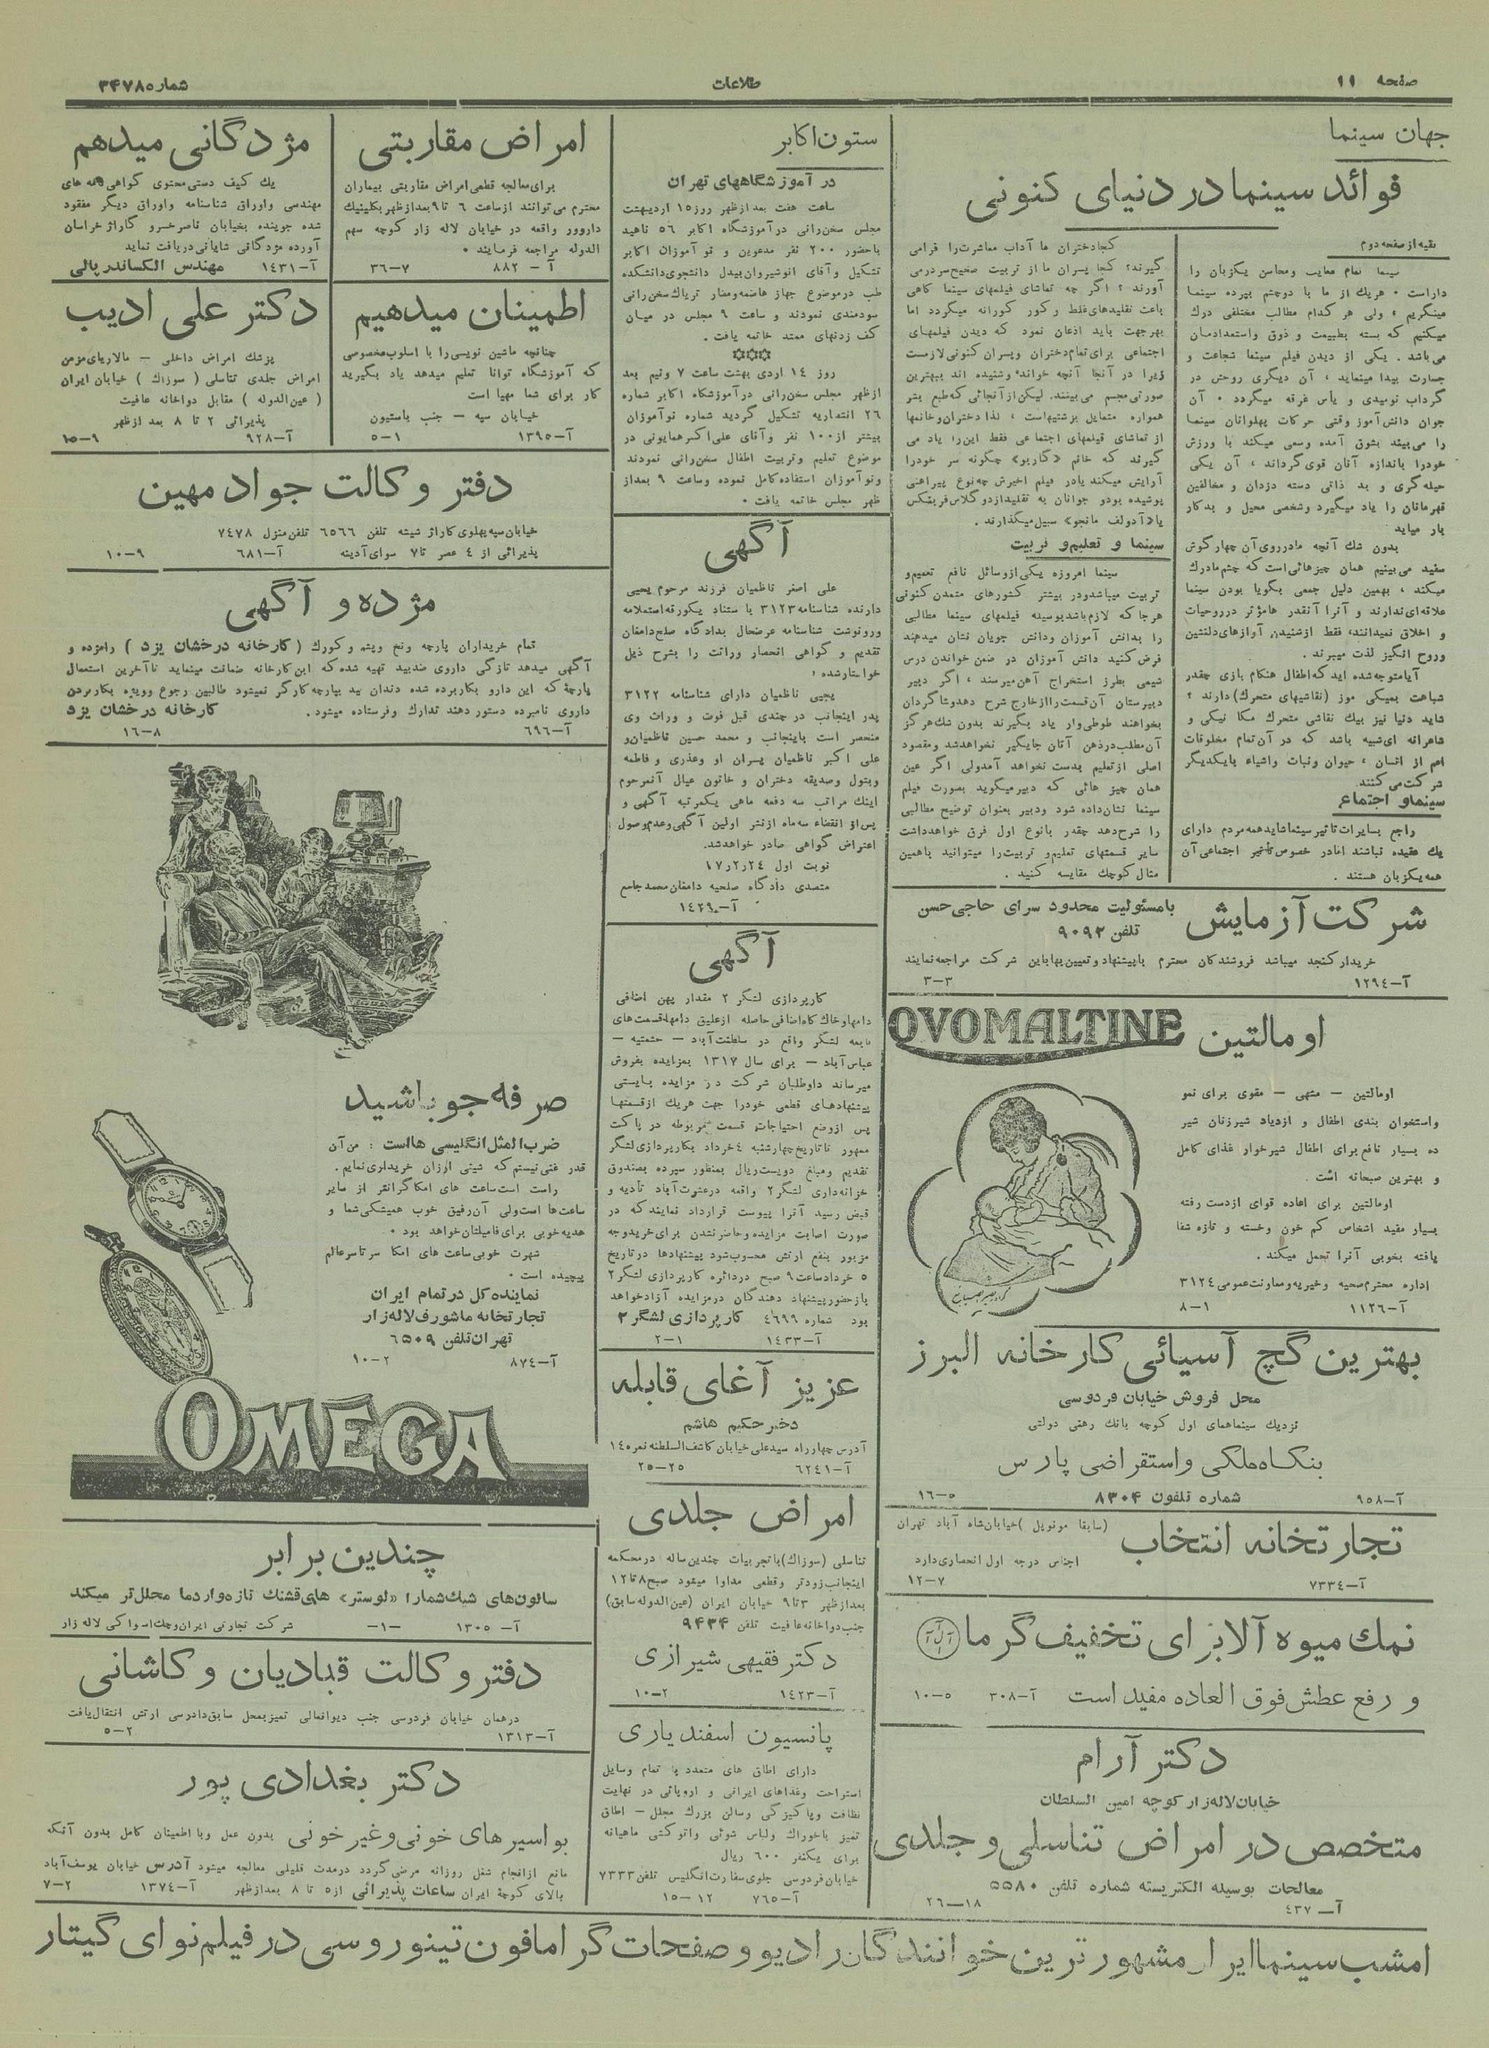 صفحه ۱۱
طلاعات
شماره ۳۴۷۸
جهان سینما
فوائد سینما در دنیای کنونی
بقیه از صفحه دوم
سینما تمام معایب و محاسن یکزبان را
داراست ۰ هریك از ما با دوچشم بپرده سینما
مینگریم ، ولی هر کدام مطالب مختلفی درك
میکنیم که بسته بطبیعت و ذوق واستعدادمان
می‌باشد . یکی از دیدن فیلم سینما شجاعت و
جسارت پیدا مینماید ، آن دیگری روحش در
گرداب نومیدی و یأس غرقه میگردد ۰ آن
جوان دانش‌آموز وقتی حرکات پهلوانان سینما
را می‌بیند بشوق آمده وسعی میکند با ورزش
خودرا باندازه آنان قوی گرداند ، آن یکی
حیله‌گری و بد ذاتی دسته دزدان و مخالفین
قهرمانان را یاد میگیرد وشخصی محیل و بدکار
بار میاید
بدون شك آنچه مادرروی آن چهارگوش
سفید می‌بینیم همان چیزهائی‌است که چشم مادرك
میکند ، بهمین دلیل جمعی بگویا بودن سینما
علاقه‌ای‌ندارند و آنرا آنقدر هامؤثر درروحیات
و اخلاق نمیدانند، فقط ازشنیدن آوازهای‌دلنشین
وروح انگیز لذت میبرند .
آیامتوجه‌شده اید که‌اطفال هنگام بازی چقدر
شباهت بمیکی موز (نقاشیهای متحرك) دارند ؟
شاید دنیا نیز بیك نقاشی متحرك مکا نیکی و
شاعرانه ای‌شبیه باشد که در آن‌تمام مخلوقات
اعم از انسان ، حیوان ونبات واشیاء بایکدیگر
شرکت می‌کنند.
سینماو اجتماع
راجع بسایرات تاثیر سینماشاید همه‌مردم دارای
یك عقیده نباشند امادر خصوص تأثیر اجتماعی آن
همه‌یکزبان هستند .
کجادختران ما آداب معاشرت‌را فرامی
گیرند؟ کجا پسران ما از تربیت صحیح سردرمی
آورند ؟ اگر چه تماشای فیلمهای سینما گاهی
باعث تقلیدهای‌غلط و کور کورانه میگردد اما
بهرجهت باید اذعان نمود که دیدن فیلمهای
اجتماعی برای‌تمام‌دختران وپسران کنونی‌لازمست
زیرا در آنجا آنچه خوانده وشنیده اند ببهترین
صورتی مجسم می‌بینند. لیکن از آنجائی که‌طبع بشر
همواره متمایل بزشتیهاست ، لذا دختران‌وخانمها
از تماشای فیلمهای اجتماعی فقط این‌را یاد می
گیرند که خانم «گاربو» چگونه سر خودرا
آرایش میکند یادر فیلم اخیرش چه‌نوع پیراهنی
پوشیده بودو جوانان به تقلیدازدوگلاس‌فربنکس
یا «آدولف مانجو» سبیل میگذارند .
سینما و تعلیم و تربیت
سینما امروزه یکی‌ازوسائل نافع تعمیم‌و
تربیت میباشدودر بیشتر کشورهای متمدن کنونی
هرجا که لازم‌باشدبوسیله فیلمهای سینما مطالبی
را بدانش آموزان ودانش جویان نشان میدهند
فرض کنید دانش آموزان در ضمن خواندن درس
شیمی بطرز استخراج آهن میرسند ، اگر دبیر
دبیرستان آن‌قسمت‌را ازخارج شرح دهدوشاگردان
بخواهند طوطی‌وار یاد بگیرند بدون شك‌هرگز
آن‌مطلب‌درذهن آنان جایگیر نخواهدشد ومقصود
اصلی از تعلیم بدست نخواهد آمدولی اگر عین
همان چیز هائی که دبیر میگوید بصورت فیلم
سینما نشان‌داده شود ودبیر بعنوان توضیح مطالبی
را شرح‌دهد چقدر بانوع اول فرق خواهدداشت
سایر قسمتهای تعلیم‌و تربیت‌را میتوانید باهمین
مثال کوچك مقایسه کنید .
شرکت آزمایش
بامسئولیت محدود سرای حاجی حسن
تلفن ۹۰۹۲
خریدار کنجد میباشد فروشندگان محترم باپیشنهاد وتعیین‌بهاباین شرکت مراجعه نمایند
آ-۱۲۹۴ ۳-۳
اومالتین OVOMALTINE
اومالتین — مشهی — مقوی برای نمو
واستخوان بندی اطفال و ازدیاد شیرزنان شیر
ده بسیار نافع‌برای اطفال شیرخوار غذای کامل
و بهترین صبحانه است .
اومالتین برای اعاده قوای ازدست رفته
بسیار مفید اشخاص کم خون وخسته و تازه شفا
یافته بخوبی آنرا تحمل میکند .
اداره محترم‌صحیه وخیریه‌ومعاونت‌عمومی ۳۱۲۴
آ-۱۱۲۶ ۱-۸
بهترین گچ آسیائی کارخانه البرز
محل فروش خیابان فردوسی
نزدیك سینماهمای اول کوچه بانك رهنی دولتی
بنگاه‌ملکی واستقراضی پارس
شماره تلفون ۸۳۰۴
آ-۹۵۸ ۵-۱۶
تجارتخانه انتخاب
(سابقا مونوپل) خیابان‌شاه آباد تهران
اجناس درجه اول انحصاری‌دارد
آ-۷۳۳۴ ۷-۱۲
نمك میوه آلا برای تخفیف گرما
و رفع عطش فوق العاده مفید است
آ-۳۰۸ ۵-۱۰
دکتر آرام
خیابان‌لاله‌زار کوچه امین السلطان
متخصص در امراض تناسلی و جلدی
معالجات بوسیله الکتریسته شماره تلفن ۵۵۸۰
آ-۴۳۷ ۱۸-۲۶
ستون اکابر
در آموزشگاههای تهران
ساعت هفت بعدازظهر روز ۱۵ اردیبهشت
مجلس سخن‌رانی درآموزشگاه اکابر ۵۶ ناهید
باحضور ۲۰۰ نفر مدعوین و نو آموزان اکابر
تشکیل وآقای انوشیروان‌بیدل دانشجوی‌دانشکده
طب درموضوع جهاز هاضمه‌ومضار تریاك سخن‌رانی
سودمندی نمودند و ساعت ۹ مجلس در میان
کف زدنهای ممتد خاتمه یافت .
روز ۱۴ اردی بهشت ساعت ۷ ونیم بعد
ازظهر مجلس سخن‌رانی درآموزشگاه اکابر شماره
۲۶ اتفاقیه تشکیل گردید شماره نوآموزان
بیشتر از ۱۰۰ نفر وآقای علی‌اکبر همایونی در
موضوع تعلیم وتربیت اطفال سخن‌رانی نمودند
ونوآموزان استفاده‌کامل نموده وساعت ۹ بعداز
ظهر مجلس خاتمه یافت ۰
آگهی
علی اصغر ناظمیان فرزند مرحوم یحیی
دارنده شناسنامه ۳۱۲۳ با ستناد یکورقه استعلامه
ورونوشت شناسنامه عرضحال بدادگاه صلح‌دامغان
تقدیم و گواهی انحصار وراثت را بشرح ذیل
خواستارشده ،
یحیی ناظمیان دارای شناسنامه ۳۱۲۲
پدر اینجانب در چندی قبل فوت و وراث وی
منحصر است باینجانب و محمد حسین ناظمیان‌و
علی اکبر ناظمیان پسران او وعذری و فاطمه
وبتول وصدیقه دختران و خاتون عیال آنمرحوم
اینك مراتب سه دفعه ماهی یکمرتبه آگهی و
پس‌از انقضاء سه‌ماه ازنشر اولین آگهی‌وعدم‌وصول
اعتراض گواهی صادر خواهدشد.
نوبت اول ۲۴ر۲ر۱۷
متصدی دادگاه صلحیه دامغان محمدجامع
آ-۱۴۲۹
آگهی
کارپردازی لشگر ۲ مقدار پهن اضافی
دامها وخاك کاه‌اضافی‌حاصله از علیق دامهاقسمت‌های
تابعه لشگر واقع در سلطنت‌آباد — حشمتیه —
عباس‌آباد — برای سال ۱۳۱۷ بمزایده بفروش
میرساند داوطلبان شرکت در مزایده بایستی
پیشنهادهای قطعی خودرا جهت هریك ازقسمتها
پس ازوضع احتیاجات قسمت مربوطه در پاکت
ممهور تاتاریخ‌چهارشنبه ۴خرداد بکارپردازی‌لشگر
تقدیم ومبلغ دویست‌ریال بمنظور سپرده بصندوق
خزانه‌داری لشگر۲ واقعه درعشرت‌آباد تأدیه و
قبض رسید آنرا پیوست قرارداد نمایندکه در
صورت اصابت مزایده وحاضرنشدن برای‌خریدوجه
مزبور بنفع ارتش محسوب‌شود پیشنهادها درتاریخ
۵ خردادساعت ۹ صبح دردائره کارپردازی لشگر ۲
بازحضورپیشنهاد دهندگان درمزایده آزادخواهد
بود شماره ۴۶۹۹ کارپردازی لشگر ۲
آ-۱۴۳۳ ۱-۲
عزیز آغای قابله
دختر حکیم هاشم
آدرس چهارراه سیدعلی خیابان کاشف‌السلطنه نمره ۱۴۵
آ-۶۲۴۱ ۲۵-۲۵
امراض جلدی
تناسلی (سوزاك) باتجربیات چندین‌ساله درمحکمه
اینجانب زودتر وقطعی مداوا میشود صبح ۸ تا۱۲
بعدازظهر ۳تا۹ خیابان ایران (عین‌الدوله‌سابق)
جنب‌دواخانه‌عافیت تلفن ۹۴۳۴
دکتر فقیهی شیرازی
آ-۱۴۲۳ ۲-۱۰
پانسیون اسفندیاری
دارای اطاق های متعدد با تمام وسایل
استراحت وغذاهای ایرانی و اروپائی در نهایت
نظافت وپاکیزگی وسالن بزرك مجلل — اطاق
تمیز باخوراك ولباس شوئی واتوکشی ماهیانه
برای یکنفر ۶۰۰ ریال
خیابان‌فردوسی جلوی‌سفارت‌انگلیس تلفن ۷۳۳۳
آ-۷۶۵ ۱۲-۱۵
امراض مقاربتی
برای‌معالجه قطعی امراض مقاربتی بیماران
محترم می‌توانند ازساعت ۶ تا ۹بعدازظهربکلینیك
داروور واقعه در خیابان لاله زار کوچه سهم
الدوله مراجعه فرمایند ۰
آ-۸۸۲ ۷-۳۶
مژدگانی میدهم
یك کیف دستی محتوی گواهی نامه های
مهندسی واوراق شناسنامه واوراق دیگر مفقود
شده جوینده بخیابان ناصرخسرو گاراژ خراسان
آورده مژدگانی شایانی دریافت نماید
آ-۱۴۳۱ مهندس الکساندر پالی
اطمینان میدهیم
چنانچه ماشین نویسی‌را با اسلوب‌مخصوصی
که آموزشگاه توانا تعلیم میدهد یاد بگیرید
کار برای شما مهیا است
خیابان سپه — جنب باستیون
آ-۱۳۹۵ ۱-۵
دکتر علی ادیب
پزشك امراض داخلی — مالاریای‌مزمن
امراض جلدی تناسلی ( سوزاك ) خیابان‌ایران
( عین‌الدوله ) مقابل دواخانه عافیت
پذیرائی ۲ تا ۸ بعد ازظهر
آ-۹۲۸ ۹-۱۵
دفتر وکالت جواد مهین
خیابان‌سپه‌پهلوی‌گاراژ شیشه تلفن ۶۵۶۶ تلفن‌منزل ۷۴۷۸
پذیرائی از ۴ عصر تا ۷ سوای آدینه آ-۶۸۱ ۹-۱۰
مژده و آگهی
تمام خریداران پارچه ونخ ویشم وکورك ( کارخانه درخشان یزد ) رامژده و
آگهی میدهد تازگی داروی ضدبید تهیه شده‌که این‌کارخانه ضمانت مینماید تاآخرین استعمال
پارچهٔ که این دارو بکاربرده شده دندان بید بپارچه‌کارگر نمیشود طالبین رجوع وویژه بکاربردن
داروی نامبرده دستور دهند تدارك وفرستاده میشود. کارخانه درخشان یزد
آ-۶۹۶ ۸-۱۶
صرفه‌جو باشید
ضرب‌المثل‌انگلیسی هااست : من‌آن
قدر غنی‌نیستم‌که شیئی ارزان خریداری‌نمایم.
راست است‌ساعت های امگا گرانتر از سایر
ساعت‌ها است‌ولی آن‌رفیق خوب همیشگی‌شما و
هدیه‌خوبی برای‌فامیلتان‌خواهد بود ۰
شهرت خوبی‌ساعت های امگا سرتاسرعالم
پیچیده است ۰
نماینده کل در تمام ایران
تجارتخانه ماشورف‌لاله‌زار
تهران تلفن ۶۵۰۹
آ-۸۷۴ ۲-۱۰
OMEGA
چندین برابر
سالون‌های شیك‌شمارا «لوستر» های‌قشنك تازه‌وارد‌ما مجلل‌تر میکند
آ-۱۳۰۵ -۱- شرکت تجارتی ایران‌وچك‌اسواکی لاله زار
دفتر وکالت قبادیان و کاشانی
درهمان خیابان فردوسی جنب دیوانعالی تمیز بمحل سابق‌دادرسی ارتش انتقال‌یافت
آ-۱۳۱۳ ۲-۵
دکتر بغدادی پور
بواسیر های خونی وغیر خونی بدون عمل وبا اطمینان کامل بدون آنکه
مانع ازانجام شغل روزانه مرض‌گردد درمدت قلیلی معالجه میشود آدرس خیابان یوسف‌آباد
بالای کوچهٔ ایران ساعات پذیرائی از۵ تا ۸ بعدازظهر آ-۱۳۷۴ ۲-۷
امشب سینما ایران مشهورترین خوانندگان رادیو و صفحات گرامافون تینوروسی در فیلم نوای گیتار